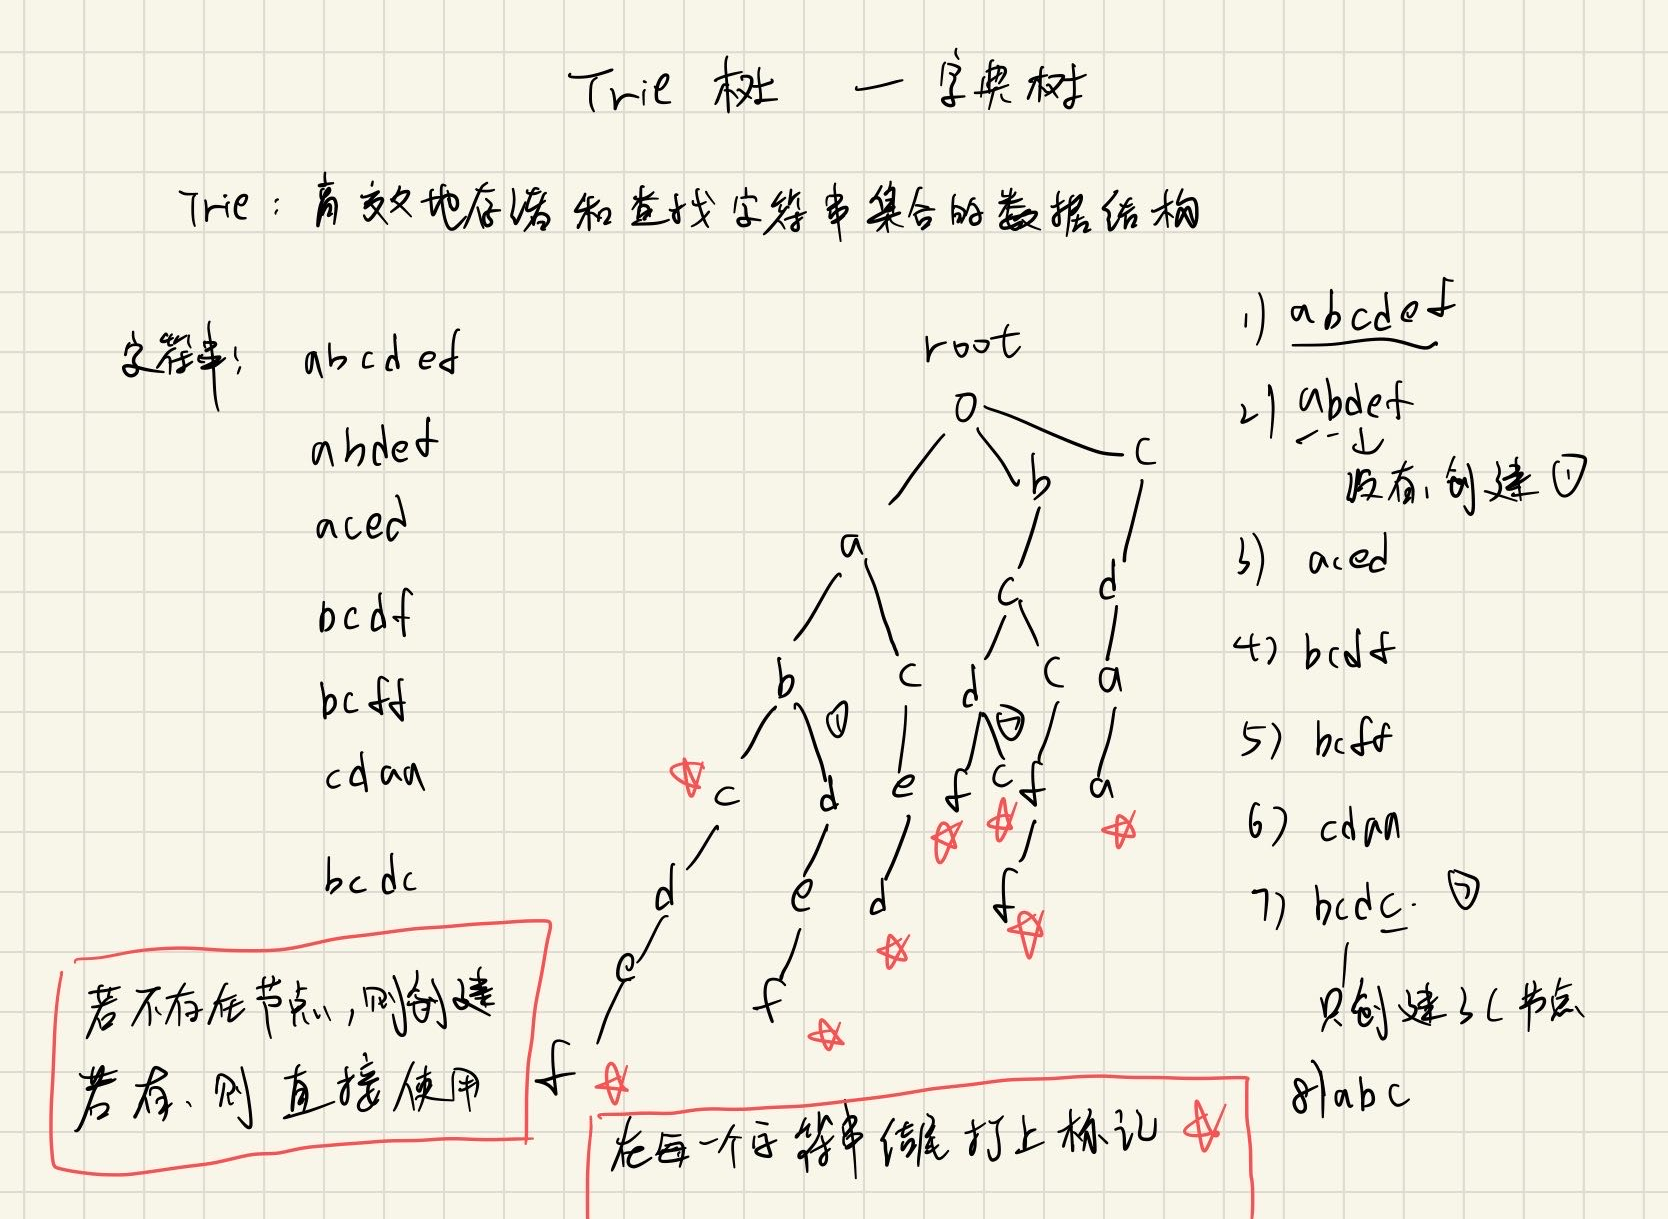 Trie 树 — 字典树
Trie：高效地存储和查找字符串集合的数据结构
字符串：
abcdef
abdef
aced
bcdf
bcff
cdaa
bcdc
若不存在节点，则创建
若有、则直接使用
root
0
a b c
b c c d
c d ① e d c a
d e d f c ② f a
e f f
f
在每一个字符串结尾打上标记 ☆
1) abcdef
2) abdef
↓
没有，创建 ①
3) aced
4) bcdf
5) bcff
6) cdaa
7) bcdc. ②
只创建了c节点
8) abc